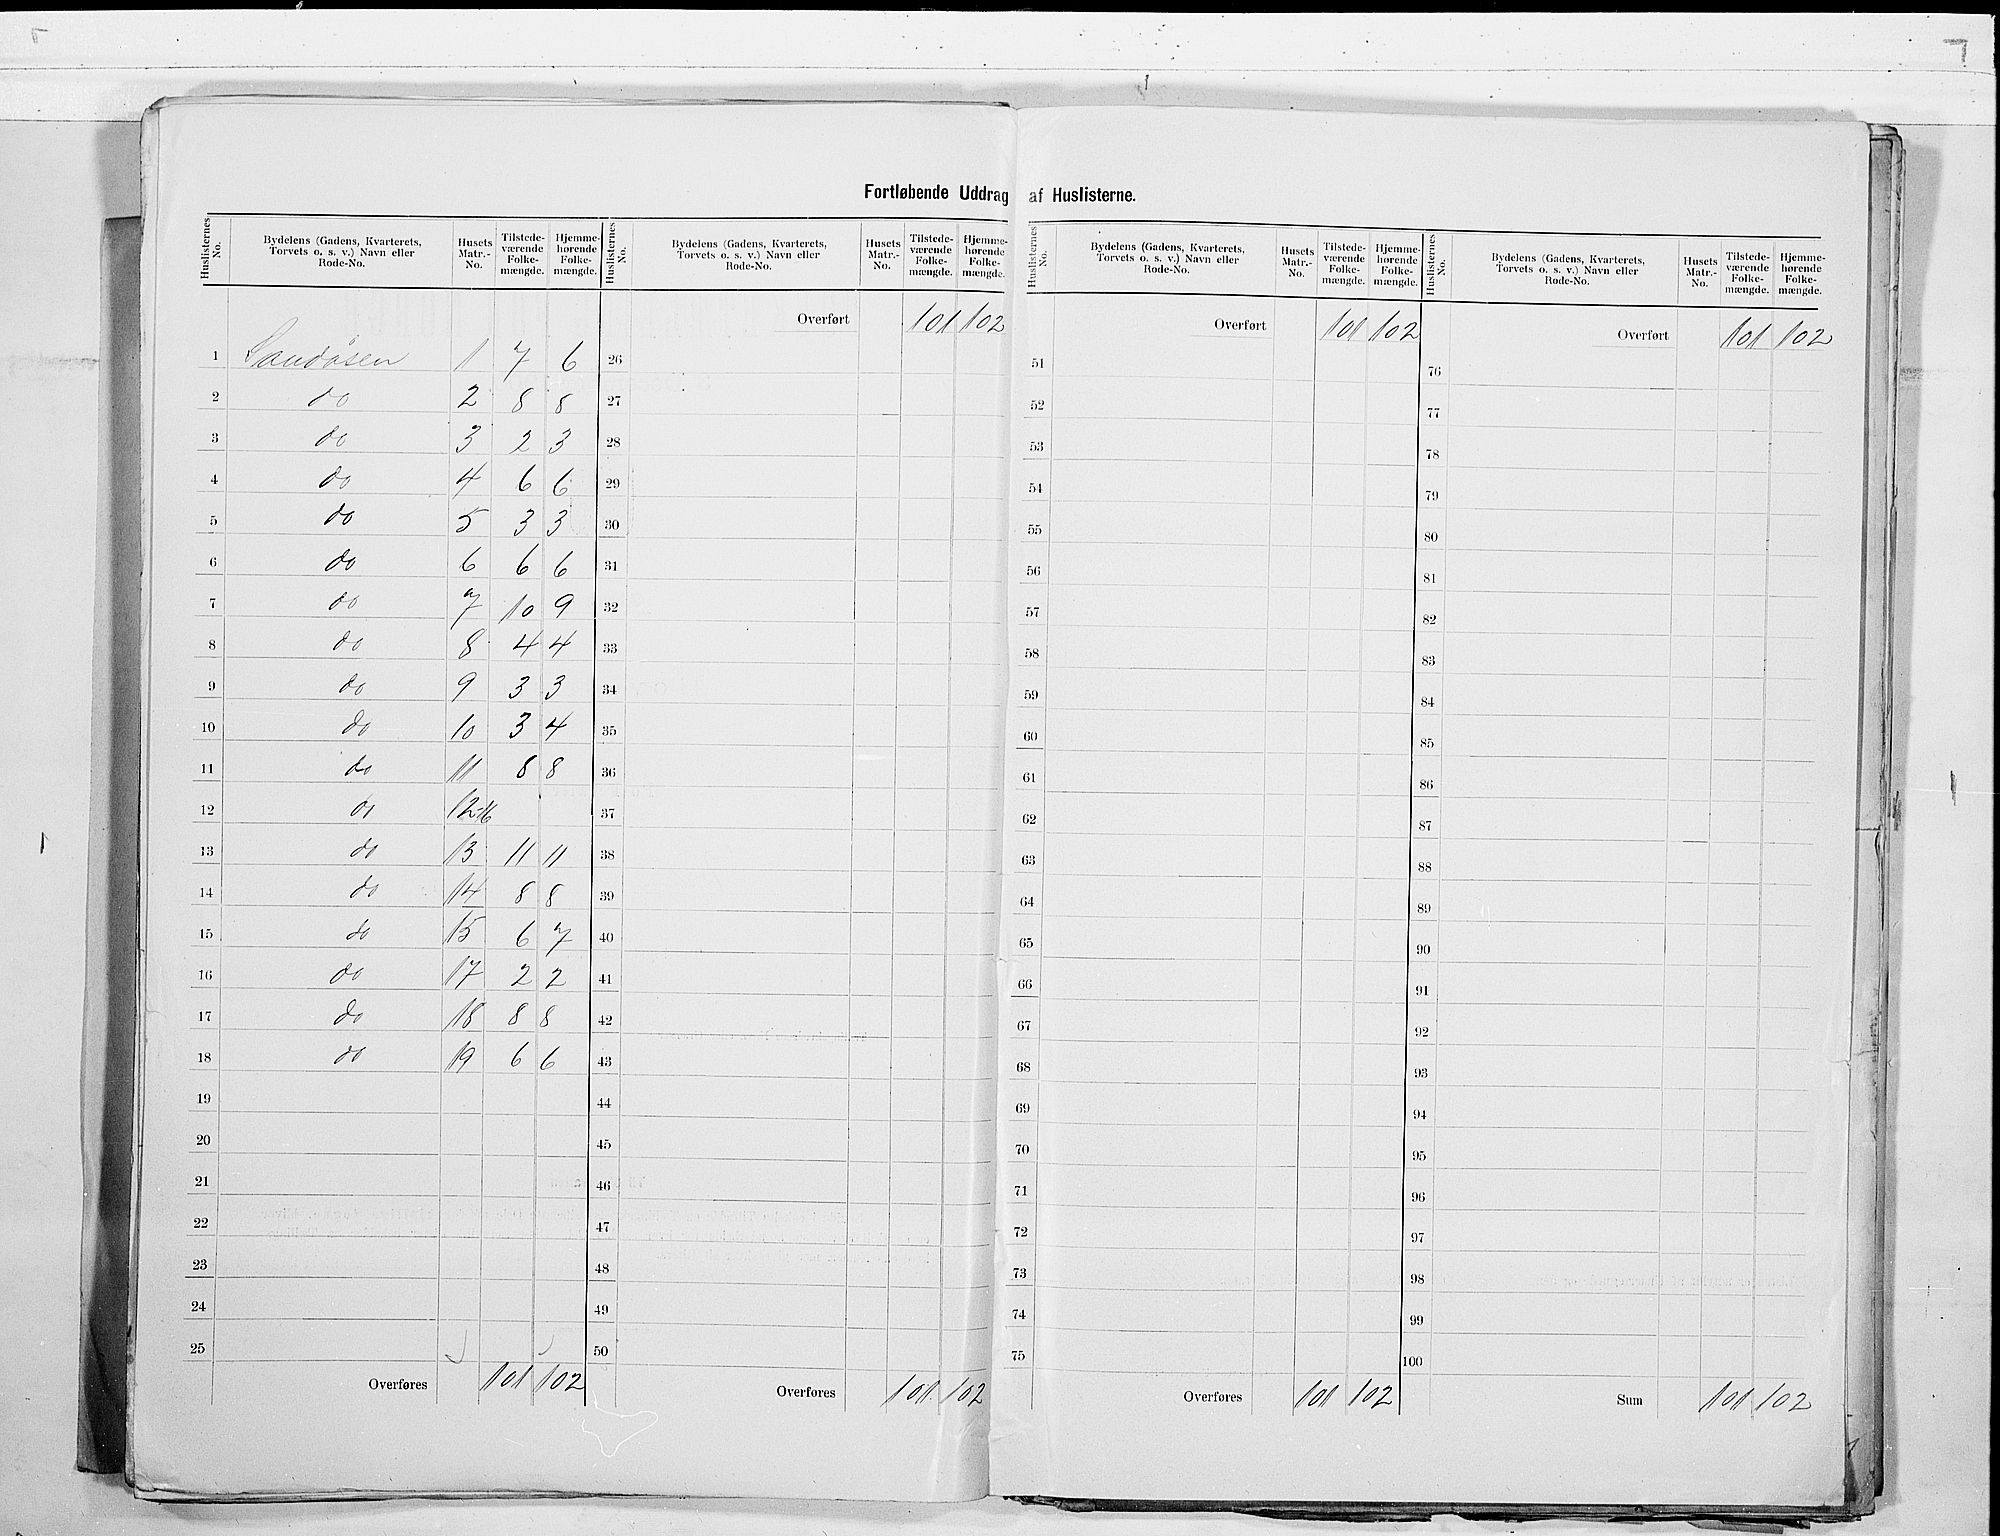 Fortløbende Uddrag af Huslisterne.
Huslisternes No. Bydelens (Gadens, Kvarterets, Torvets o. s. v.) Navn eller Rode-No. Husets Matr.-No. Tilstedeværende Folkemængde. Hjemmehørende Folkemængde.
1 Sandøsen 1 7 6
2 do 2 8 8
3 do 3 2 3
4 do 4 6 6
5 do 5 3 3
6 do 6 6 6
7 do 7 10 9
8 do 8 4 4
9 do 9 3 3
10 do 10 3 4
11 do 11 8 8
12 do 12-16
13 do 13 11 11
14 do 14 8 8
15 do 15 6 7
16 do 17 2 2
17 do 18 8 8
18 do 19 6 6
19
20
21
22
23
24
25
Overføres 101 102
Huslisternes No. Bydelens (Gadens, Kvarterets, Torvets o. s. v.) Navn eller Rode-No. Husets Matr.-No. Tilstedeværende Folkemængde. Hjemmehørende Folkemængde.
Overført 101 102
26
27
28
29
30
31
32
33
34
35
36
37
38
39
40
41
42
43
44
45
46
47
48
49
50
Overføres 101 102
Huslisternes No. Bydelens (Gadens, Kvarterets, Torvets o. s. v.) Navn eller Rode-No. Husets Matr.-No. Tilstedeværende Folkemængde. Hjemmehørende Folkemængde.
Overført 101 102
51
52
53
54
55
56
57
58
59
60
61
62
63
64
65
66
67
68
69
70
71
72
73
74
75
Overføres 101 102
Huslisternes No. Bydelens (Gadens, Kvarterets, Torvets o. s. v.) Navn eller Rode-No. Husets Matr.-No. Tilstedeværende Folkemængde. Hjemmehørende Folkemængde.
Overført 101 102
76
77
78
79
80
81
82
83
84
85
86
87
88
89
90
91
92
93
94
95
96
97
98
99
100
Sum 101 102